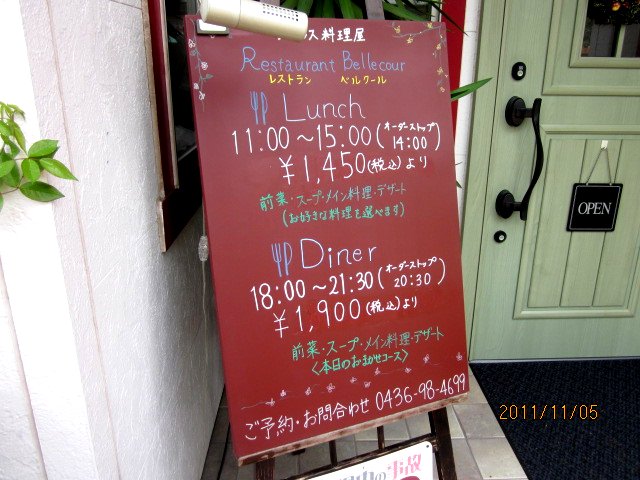 ス料理屋
Restaurant Bellecour
レストラン ベルクール
Lunch
11:00~15:00(オーダーストップ 14:00)
¥1,450(税込)より
前菜・スープ・メイン料理・デザート
(お好きな料理を選べます)
Diner
18:00~21:30(オーダーストップ 20:30)
¥1,900(税込)より
前菜・スープ・メイン料理・デザート
<本日のおまかせコース>
ご予約・お問合わせ 0436-98-4699
OPEN
の事故
2011/11/05